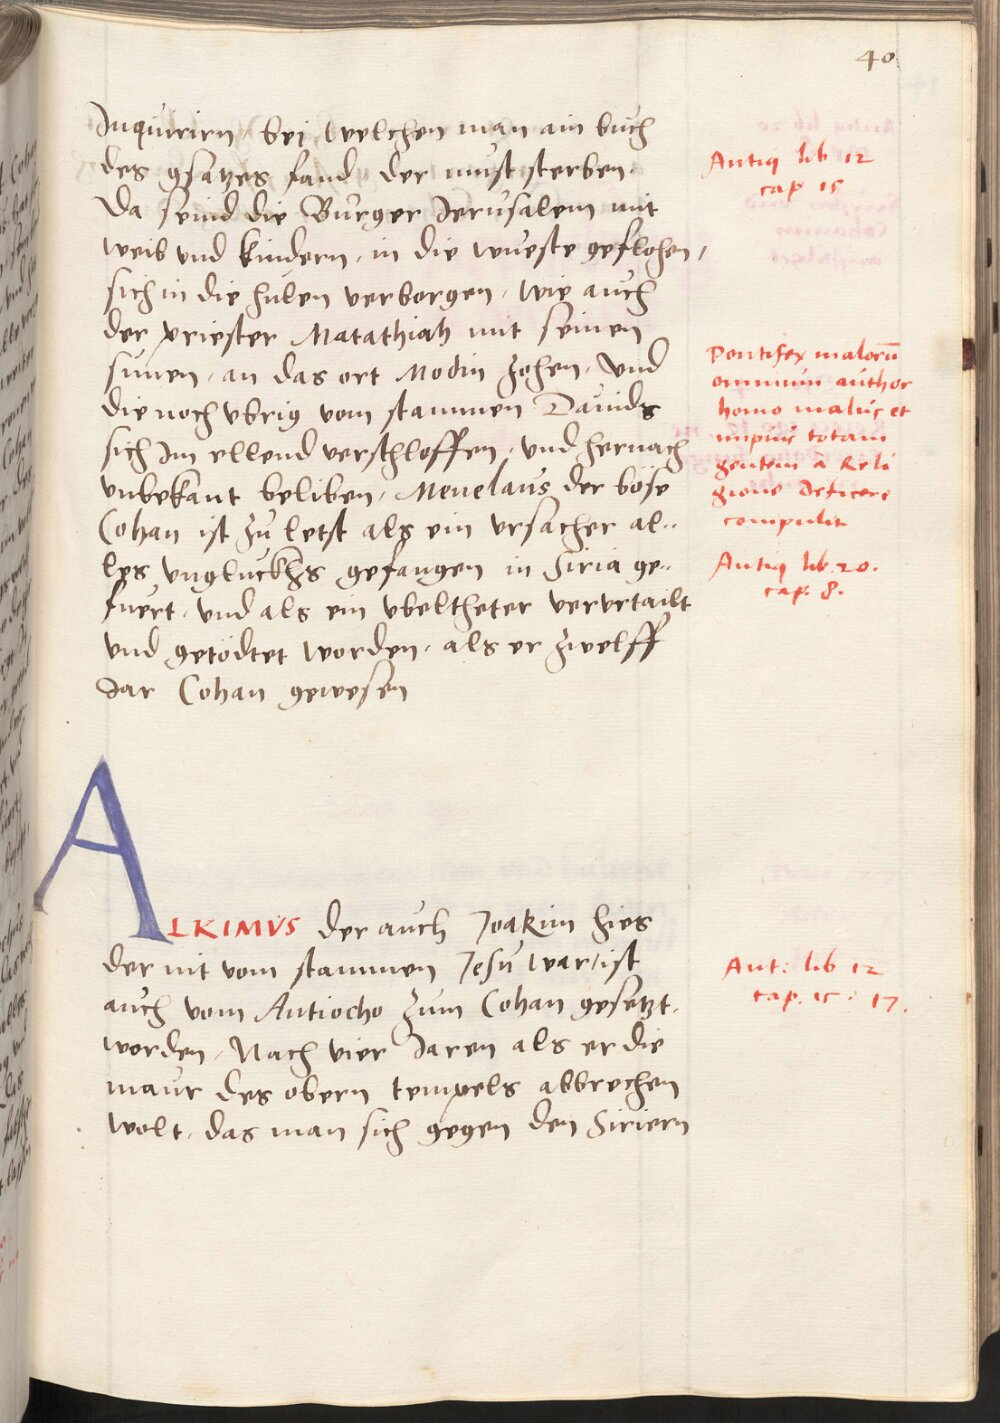 40
Inquirirn bei welchen man ain buch
des gsatzes fand der must sterben.
Da seind die Burger Jerusalem mit
weib vnd kindern, in die wueste geflohen,
sich in die hülen verborgen, wie auch
der priester Matathiah mit seinen
sunen, an das ort Modin zohen, Vnd
die noch vbrig vom stammen Dauids
sich Im ellend verschloffen, vnd hernach
vnbekant beliben, Menelaus der böse
Cohan ist zu letst als ein vrsacher al-
les vnglucks gefangen in Siria ge-
fuert, vnd als ein vbeltheter vervrtailt
vnd getödtet worden, als er zwelff
Jar Cohan gewesen
Antiq lib 12
cap 15
Pontifex malorū
omnium author
homo malus et
impius totam
gentem a Reli
gione deficere
compulit
Antiq lib. 20.
cap. 8.
ALKIMVS der auch Joakim hies
der nit vom stammen Jesu war, ist
auch vom Antiocho zum Cohan gesetzt.
worden, Nach vier Jaren als er die
maur des obern tempels abbrechen
wolt, das man sich gegen den Siriern
Ant: lib 12
cap. 15. 17.